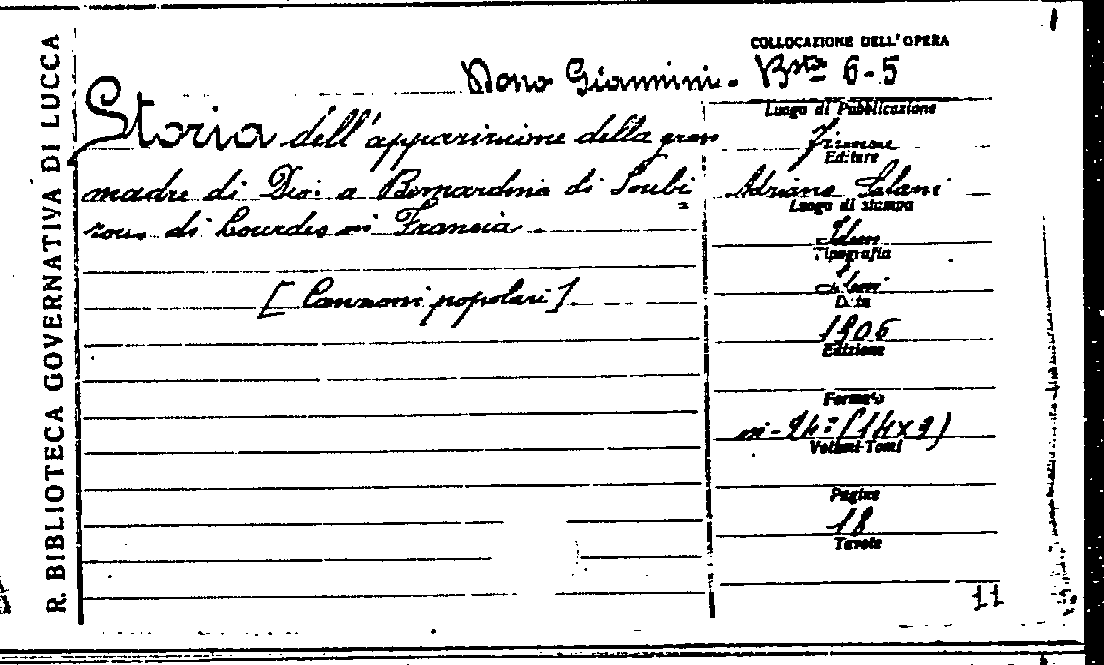 R. BIBLIOTECA GOVERNATIVA DI LUCCA
COLLOCAZIONE DELL'OPERA
Dono Giannini - Bsta 6-5
Storia dell'apparizione della gran
madre di Dio: a Bernardina di Soubi
rous di Lourdes in Francia.
[Canzoni popolari]
Luogo di Pubblicazione
Firenze
Editore
Adriano Salani
Luogo di stampa
Idem
Tipografia
Idem
Data
1906
Edizione
Formato
in-24° (14x9)
Volumi-Tomi
Pagine
18
Tavole
11